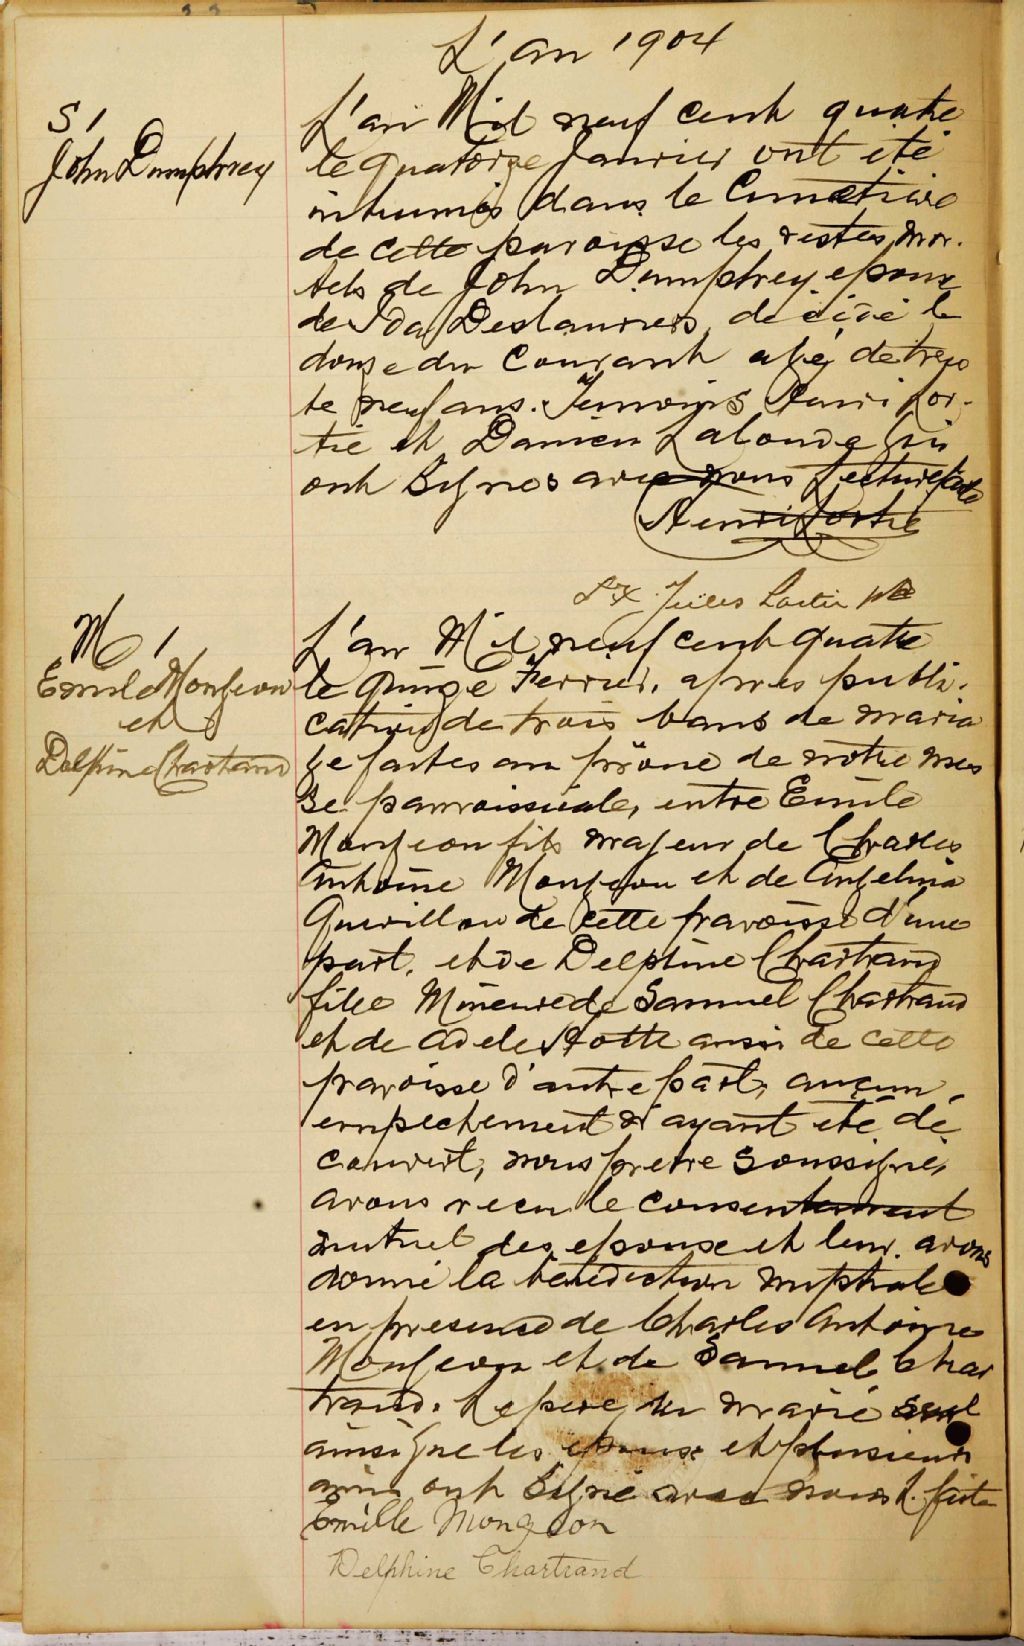 L'an 1904
S1
John Dumphrey
L'an Mil neuf cent quatre
le quatorze Janvier ont été
inhumés dans le Cimetière
de cette paroisse les restes mor-
tels de John Dumphrey epoux
de Ida Deslauriers, décédé le
douze du courant agé de tren
te neuf ans. Temoins Henri For-
tié et Damien Lalonde qui
ont Signés avec nous Lecture faite
Henri Fortié
Fx. Jules Lortie ptre
M1
Emile Mongeon
et
Delphine Chartrand
L'an Mil neuf cent quatre
le quinze Fevrier, apres publi-
cation de trois bans de maria
ge faites au prône de notre mes
se parroissiale, entre Emile
Mongeon fils majeur de Charles
Antoine Mongeon et de Angelina
Quevillon de cette paroisse d'une
part, et de Delphine Chartrand
fille Mineure de Samuel Chartrand
et de Adele Hotte aussi de cette
paroisse d'autre part, aucun
empechement n'ayant été dé
couvert, nous pretre Soussigné,
avons recu le consentement
mutuel des epoux et leur avons
donné la bénédiction nuptiale
en presence de Charles Antoine
Mongeon et de Samuel Char
trand. Le pere du marié seul
ainsi que les epoux et plusieurs
amis ont Signé avec nous L. faite
Emille Mongeon
Delphine Chartrand